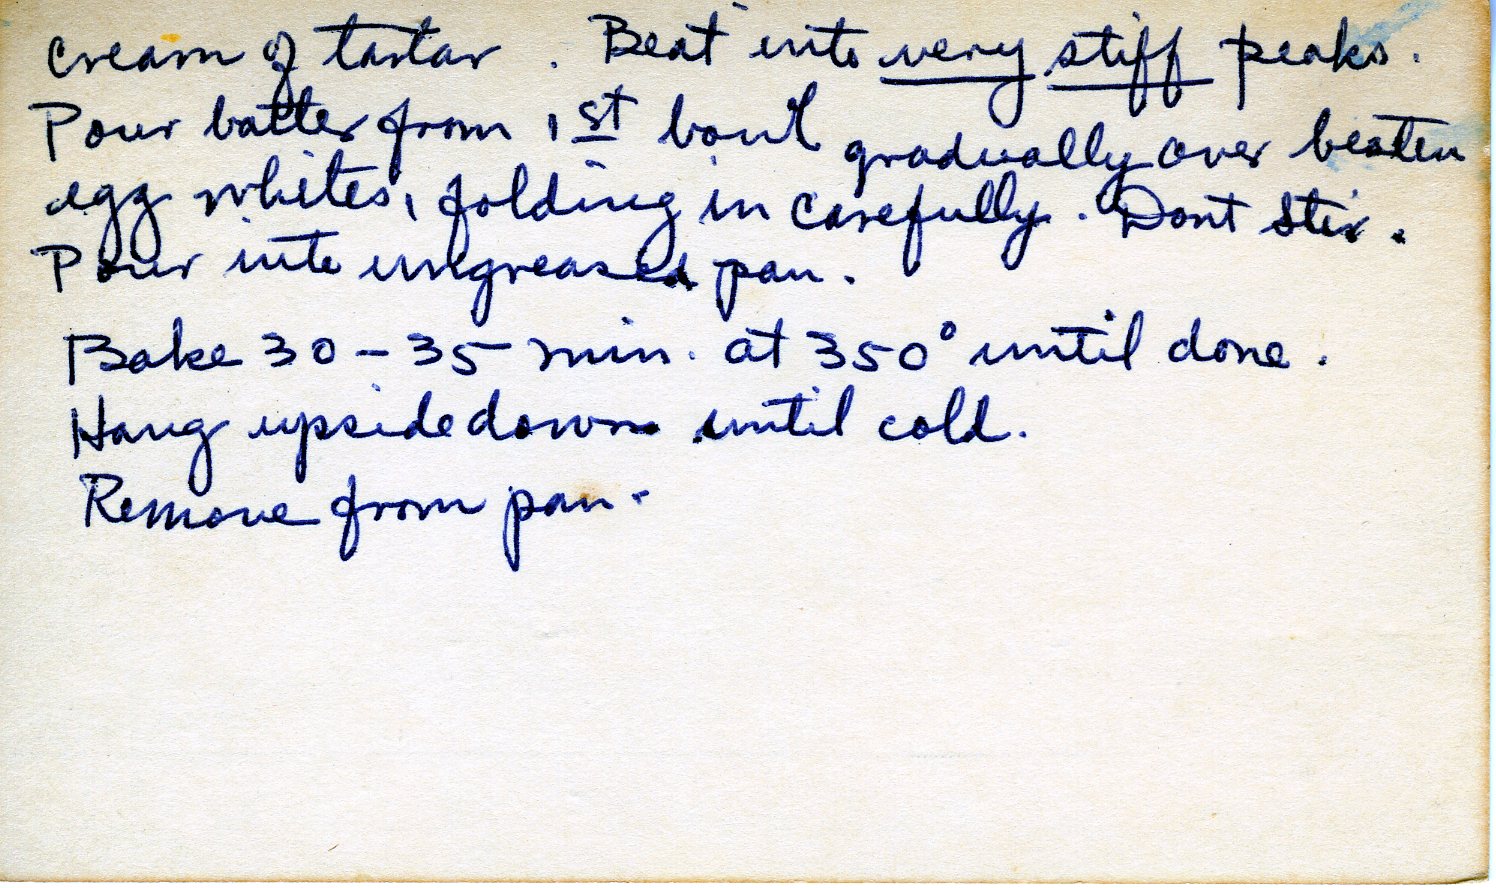 cream of tartar. Beat into very stiff peaks.
Pour batter from 1st bowl gradually over beaten
egg whites, folding in carefully. Dont stir.
Pour into ungreased pan.
Bake 30-35 min. at 350° until done.
Hang upside down until cold.
Remove from pan.